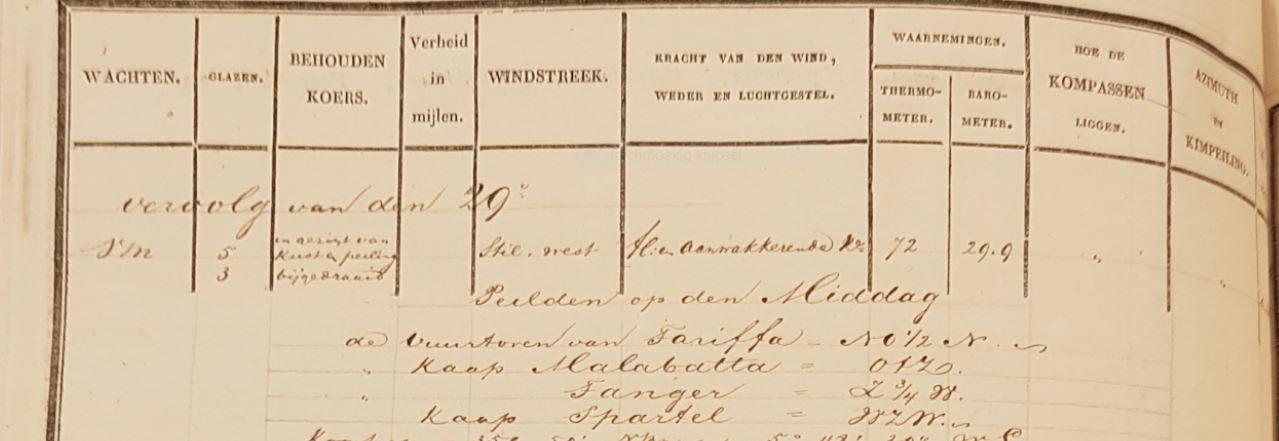 WACHTEN.
GLAZEN.
BEHOUDEN
KOERS.
Verheid
in
mijlen.
WINDSTREEK.
KRACHT VAN DEN WIND,
WEDER EN LUCHTGESTEL.
WAARNEMINGEN.
THERMO-
METER.
BARO-
METER.
HOE DE
KOMPASSEN
LIGGEN.
AZIMUTH
EN
KIMPEILING.
vervolg van den 29e
VM
5
3
in gezigt van
Kust en peiling
bijgedraaid
Stil. west
aanwakkerende
72
29.9
"
"
Peilden op den Middag
de vuurtoren van Tariffa - NO 1/2 N.
" Kaap Malabatta = OTZ.
" Tanger = Z 3/4 W.
Kaap Spartel = WZW.